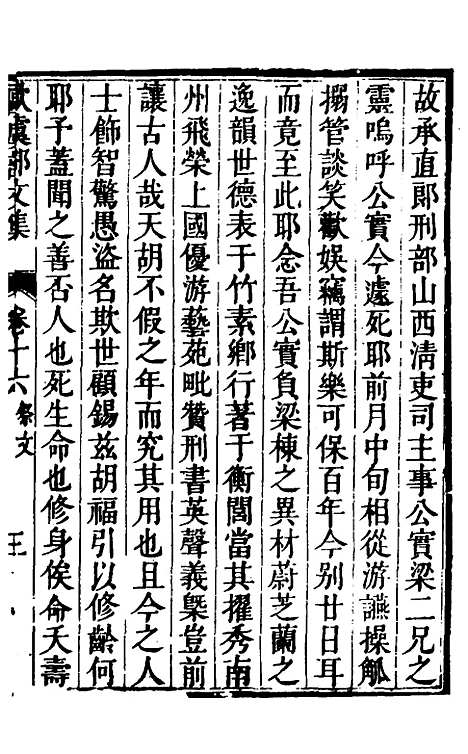 故承直郎刑部山西清吏司主事公實梁二兄之
靈嗚呼公實今遽死耶前月中旬相從游讌操觚
搦管談笑歡娛竊謂斯樂可保百年今别廿日耳
而竟至此耶念吾公實負梁棟之異材蔚芝蘭之
逸韻世德表于竹素鄉行著于衡閭當其擢秀南
州飛榮上國優游藝苑毗贊刑書英聲義槩豈前
讓古人哉天胡不假之年而究其用也且今之人
士飾智驚愚盜名欺世顧錫兹胡福引以修齡何
耶予蓋聞之善否人也死生命也修身俟命夭壽
虞部文集 卷十六 祭文